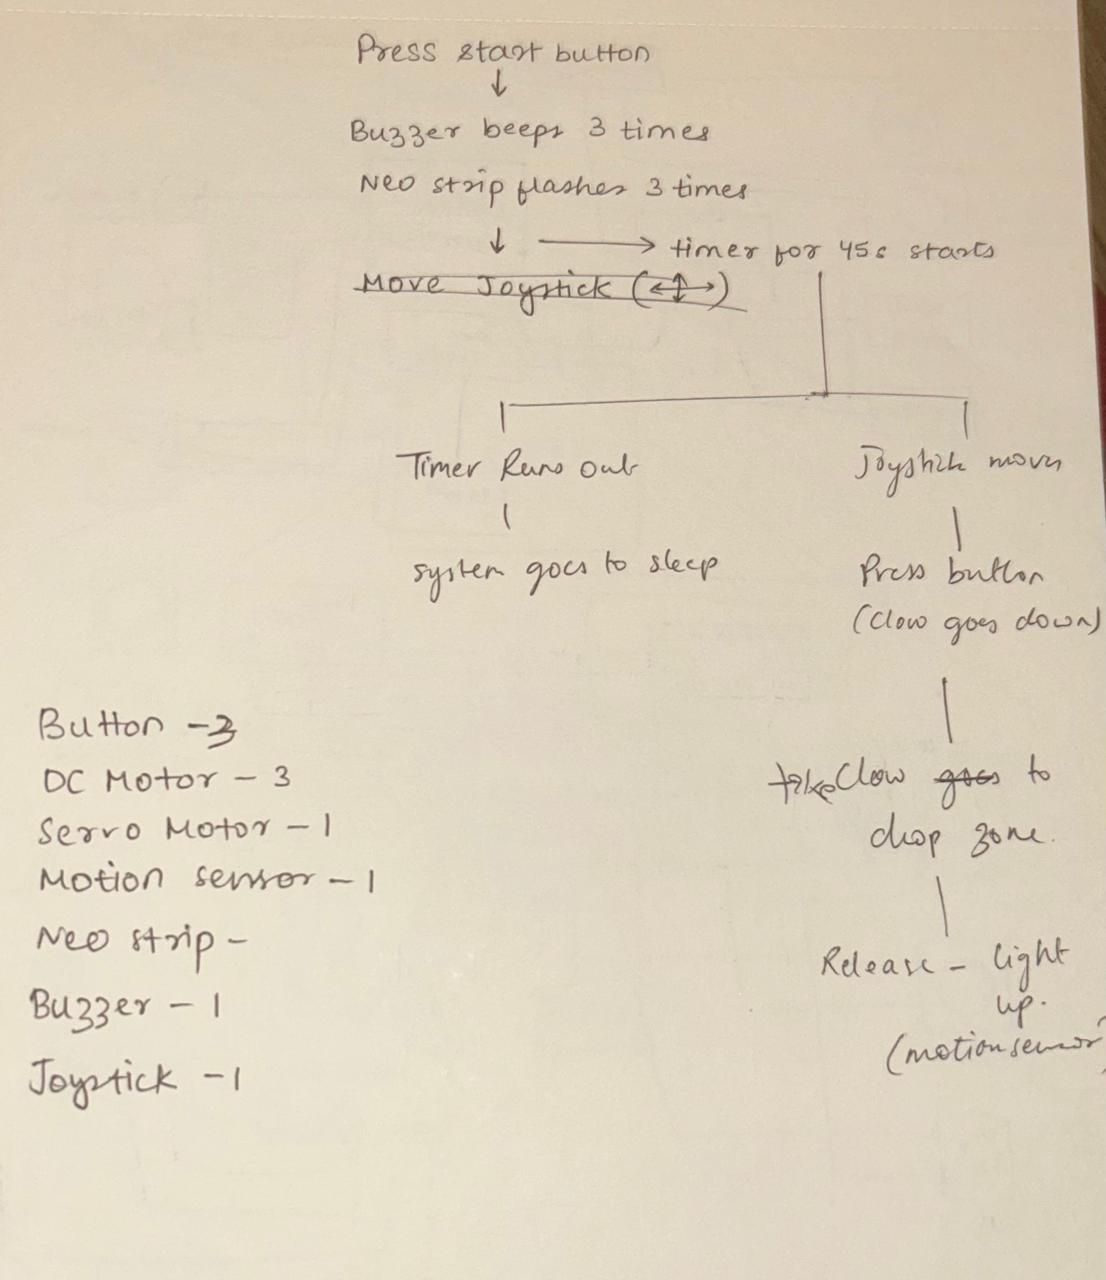 Press start button
↓
Buzzer beeps 3 times
Neo strip flashes 3 times
↓ → timer for 45s starts
Move Joystick (↔↕)
Timer Runs out
Joystick moves
system goes to sleep
Press button
(Claw goes down)
take Claw goes to
drop zone.
Release - light
up.
(motion sensor)
Button - 3
DC Motor - 3
Servo Motor - 1
Motion sensor - 1
Neo strip -
Buzzer - 1
Joystick - 1